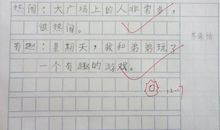 热闹：大广场上的人非常多，
很热闹。
有趣：星期天，我和弟弟玩了
一个有趣的游戏。